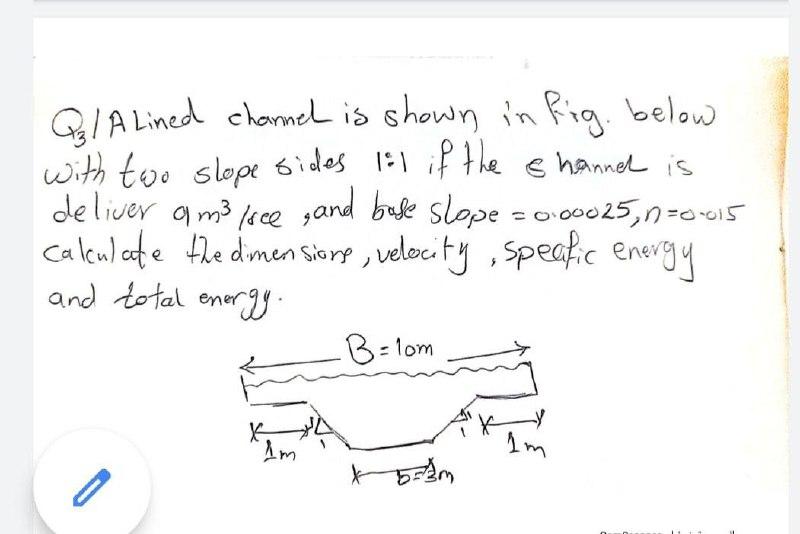 Q3/A Lined channel is shown in fig. below
with two slope sides 1:1 if the channel is
deliver 9 m³/sec, and base slope = 0.00025, n=0.015
Calculate the dimensions, velocity, specific energy
and total energy.
B=10m
1
1
1m
1m
b=3m